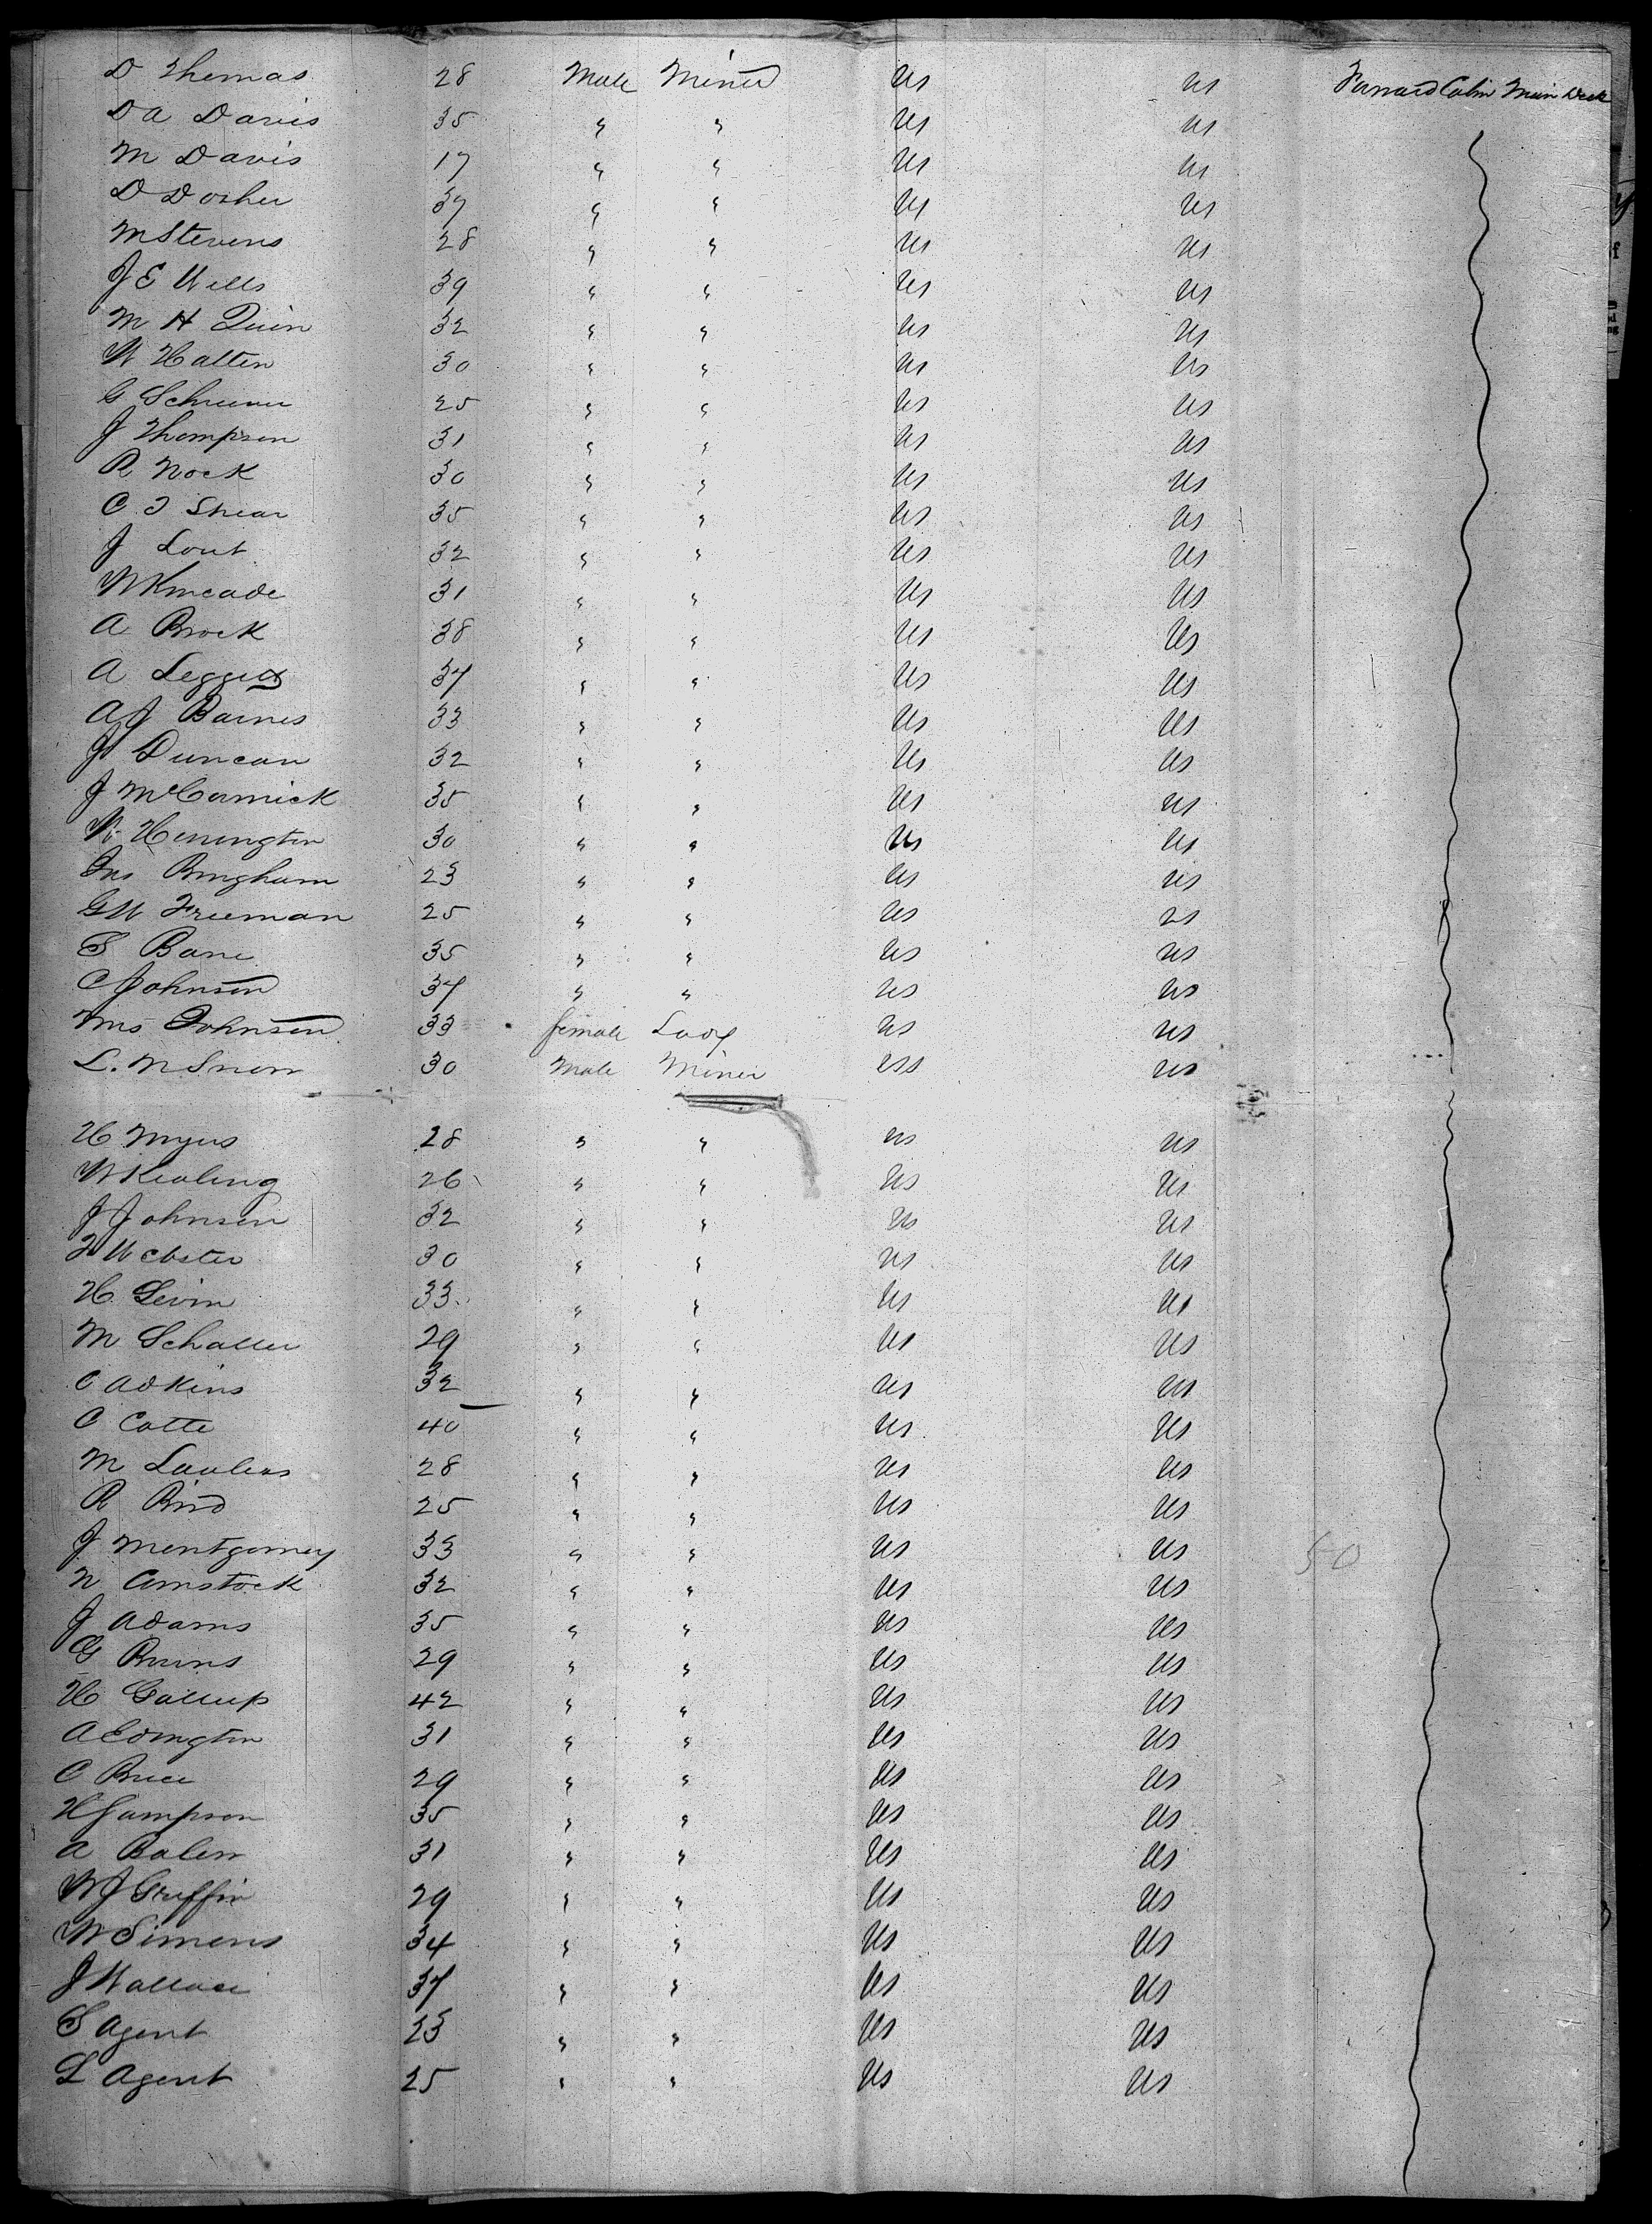 D Thomas 28 Male Miner US US Forward Cabin Main Deck
D A Davis 35 " " US US
M Davis 17 " " US US
D Dosher 37 " " US US
M Stevens 28 " " US US
J E Wells 39 " " US US
M H Quin 32 " " US US
W Hatten 30 " " US US
G 25 " " US US
J Thompson 31 " " US US
R Nock 30 " " US US
C T Shear 35 " " US US
J Lout 32 " " US US
W Kincade 31 " " US US
A Brock 38 " " US US
A Leggett 37 " " US US
A J Barnes 33 " " US US
J Duncan 32 " " US US
J McCormick 35 " " US US
W Henington 30 " " US US
Jno Bingham 23 " " US US
G W Freeman 25 " " US US
S Bane 35 " " US US
C Johnson 37 " " US US
Mrs Johnson 33 female Lady US US
L. N Snow 30 Male Miner US US
H Myers 28 " " US US
W Keoling 26 " " US US
J Johnson 32 " " US US
F Webster 30 " " US US
H Levin 33 " " US US
M Schaller 29 " " US US
C Adkins 32 " " US US
C Cotte 40 " " US US
M Lawless 28 " " US US
R Bird 25 " " US US
J Montgomery 33 " " US US 50
N Amstock 32 " " US US
J Adams 35 " " US US
G Burns 29 " " US US
H Gallup 42 " " US US
A Edington 31 " " US US
C Price 29 " " US US
H Sampson 35 " " US US
A Balen 31 " " US US
W J Griffin 29 " " US US
W Simens 34 " " US US
J Wallace 37 " " US US
S Agent 23 " " US US
L Agent 25 " " US US